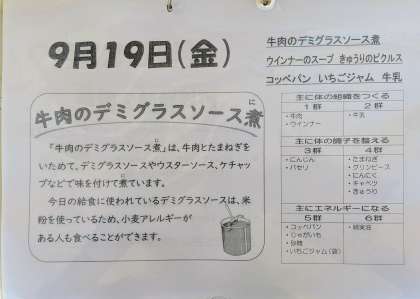 9月19日(金)
牛肉のデミグラスソース煮
ウインナーのスープ きゅうりのピクルス
コッペパン いちごジャム 牛乳
牛肉のデミグラスソース煮
に
「牛肉のデミグラスソース煮」は、牛肉とたまねぎを
いためて、デミグラスソースやウスターソース、ケチャッ
プなどで味を付けて煮ています。
今日の給食に使われているデミグラスソースは、米
粉を使っているため、小麦アレルギーが
ある人も食べることができます。
主に体の組織をつくる
1群 2群
・牛肉 ・牛乳
・ウインナー
主に体の調子を整える
3群 4群
・にんじん ・たまねぎ
・パセリ ・グリンピース
・にんにく
・キャベツ
・きゅうり
主にエネルギーになる
5群 6群
・コッペパン ・綿実油
・じゃがいも
・砂糖
・いちごジャム(袋)